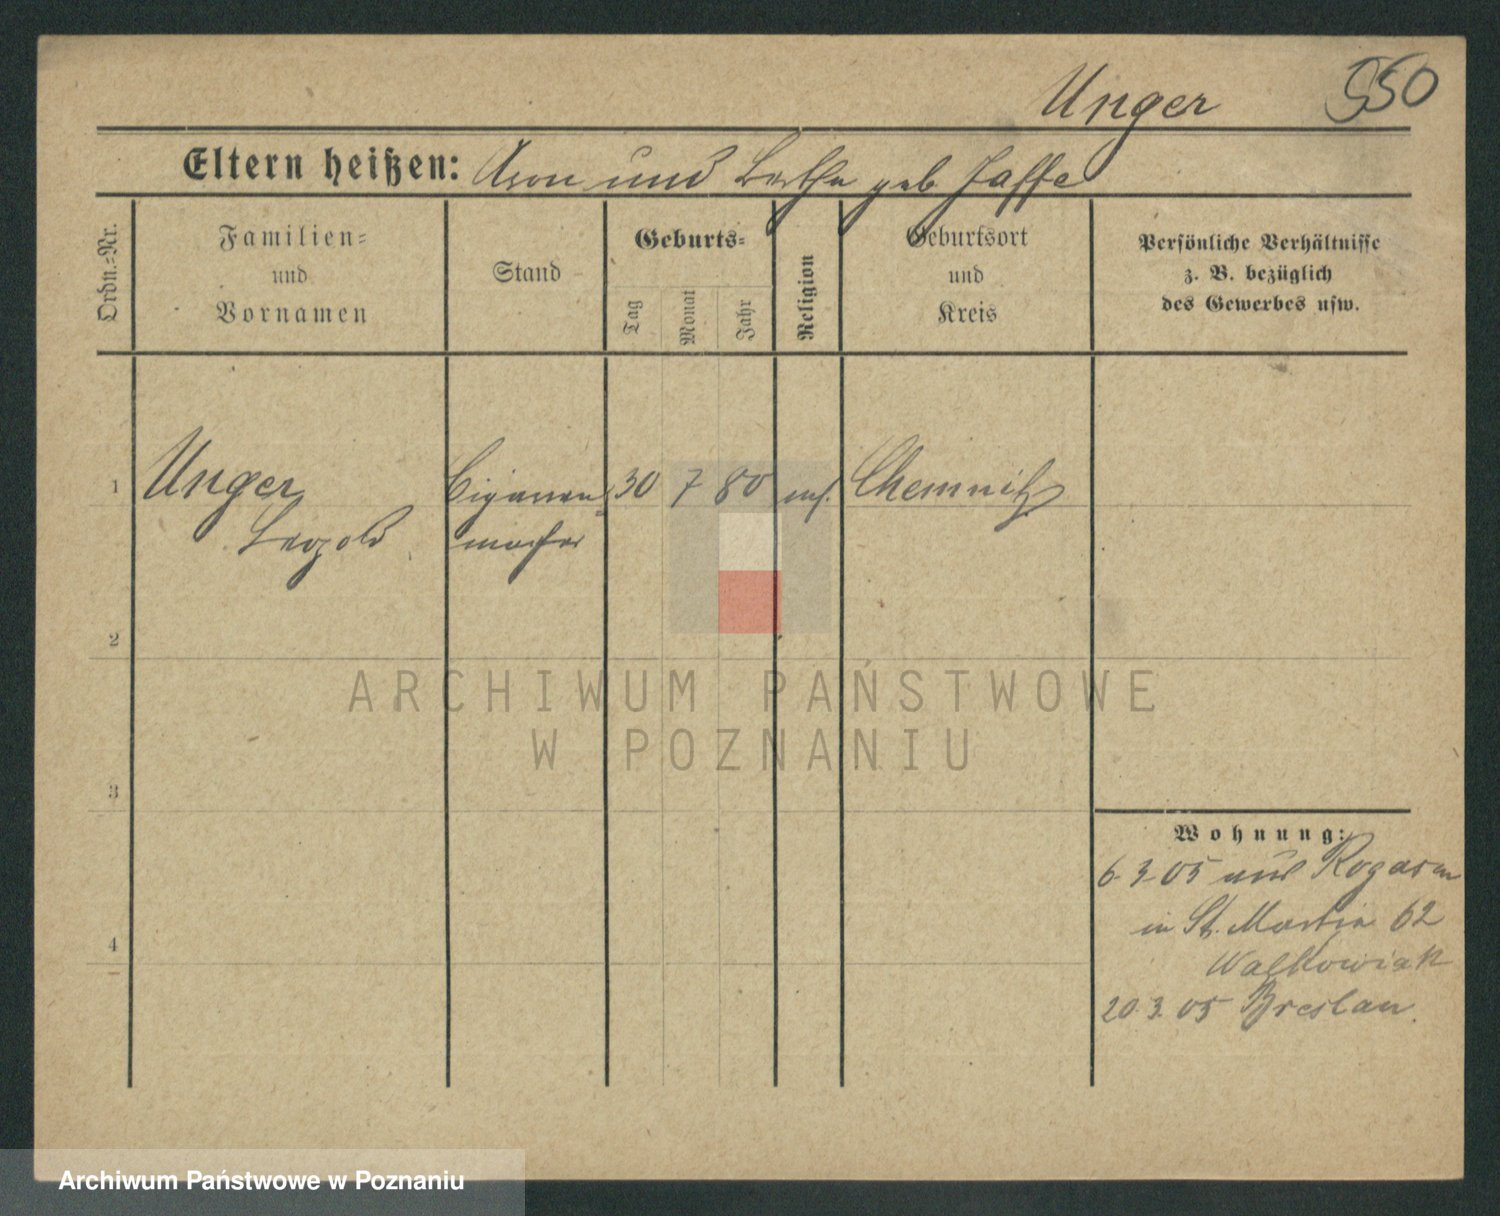 Unger 550
Eltern heißen: Aron und Bertha geb Jaffe
Ordn.=Nr.
Familien=
und
Vornamen
Stand
Geburts=
Tag
Monat
Jahr
Religion
Geburtsort
und
Kreis
Persönliche Verhältnisse
z. B. bezüglich
des Gewerbes usw.
1 Unger Cigarren 30 7 80 mos. Chemnitz
Leopold macher
2
3
4
Wohnung:
6.3.05 aus Rogasen
in St. Martin 62
Walkowiak
20.3.05 Breslau.
ARCHIWUM PAŃSTWOWE
W POZNANIU
Archiwum Państwowe w Poznaniu